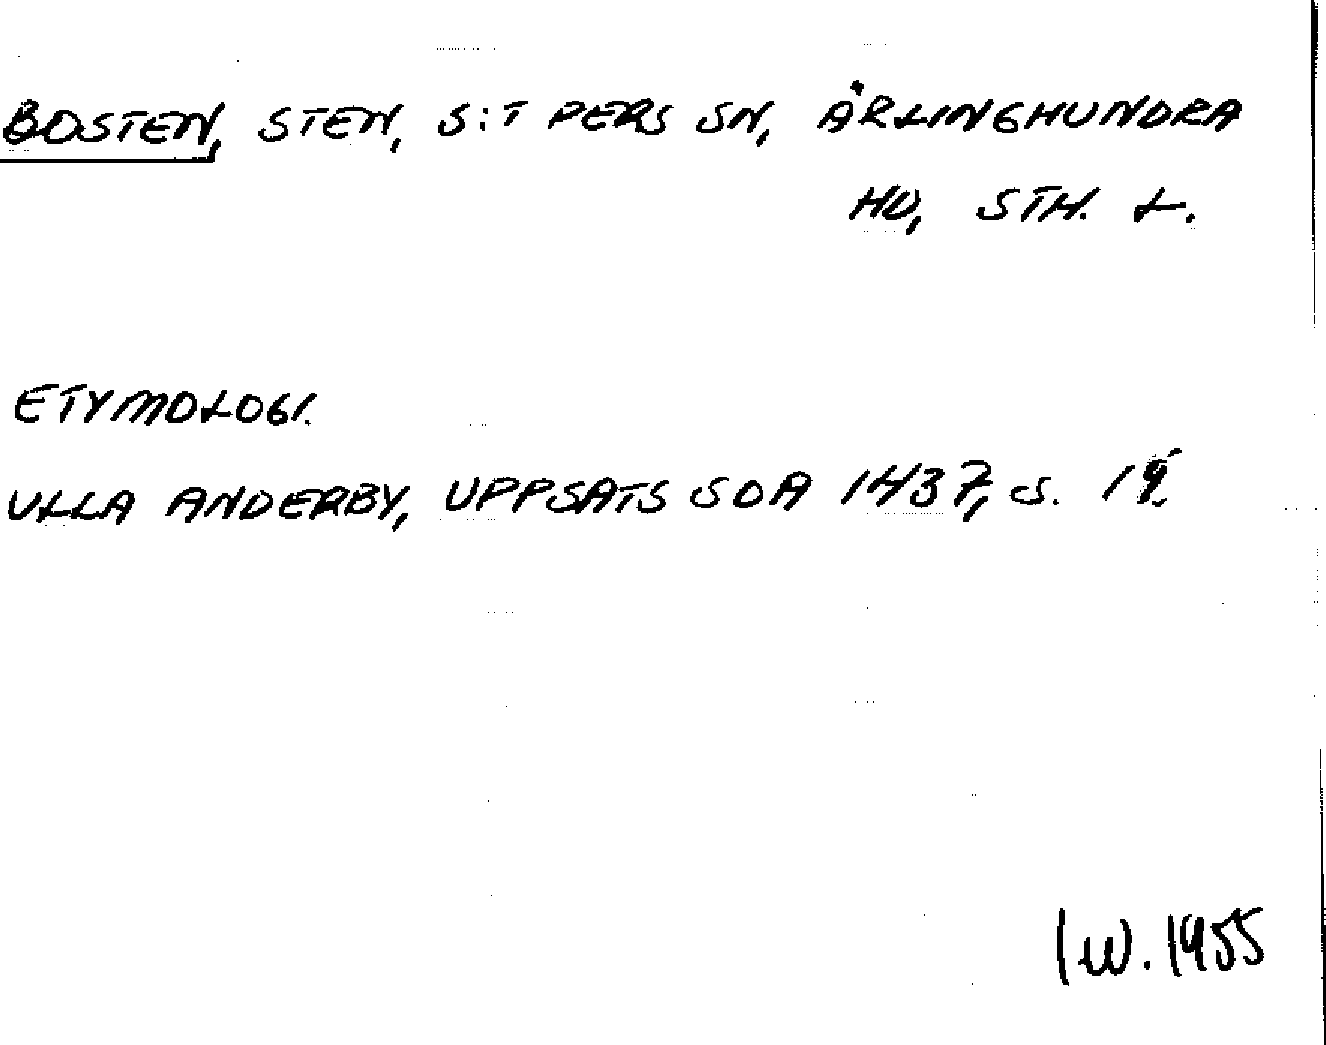 BOSTEN, STEN, S:T PERS SN, ÄRLINGHUNDRA
HD, STH. L.
ETYMOLOGI.
ULLA ANDERBY, UPPSATS SOA 1437, S.
IW. 1955